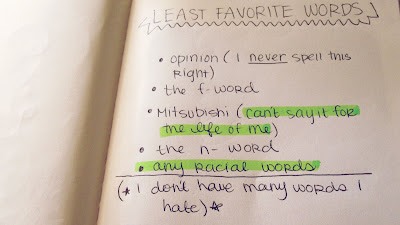 LEAST FAVORITE WORDS
• opinion ( I never spell this
right)
• the f-word
• Mitsubishi (can't say it for
the life of me)
• the n-word
• any racial words
(* I don't have many words I
hate)*